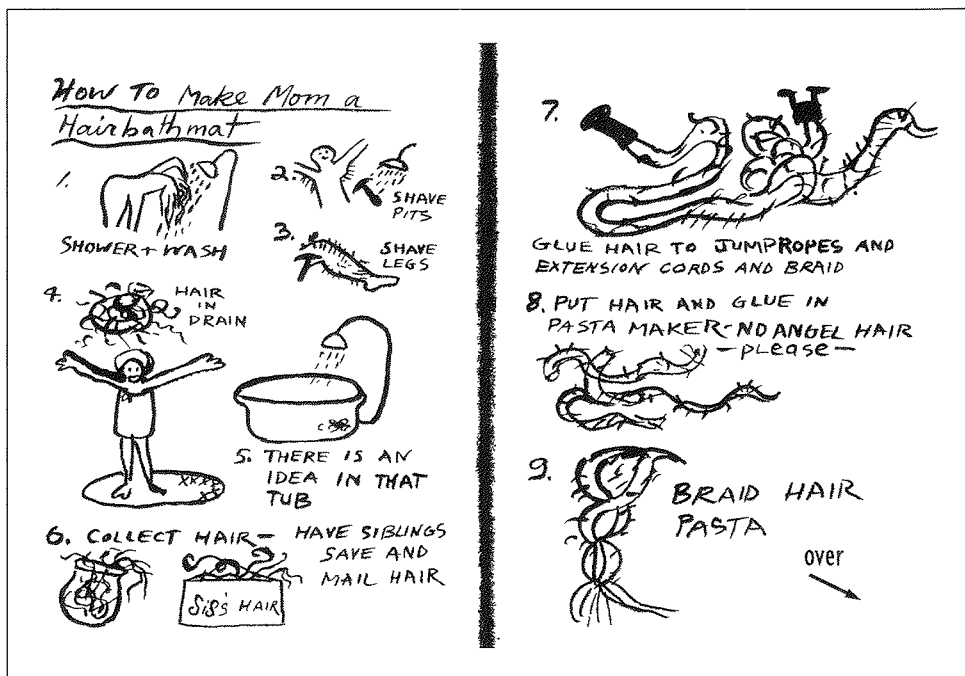 HOW TO Make Mom a
Hairbathmat
1.
SHOWER + WASH
2.
SHAVE
PITS
3.
SHAVE
LEGS
4.
HAIR
IN
DRAIN
5. THERE IS AN
IDEA IN THAT
TUB
6. COLLECT HAIR — HAVE SIBLINGS
SAVE AND
MAIL HAIR
Sis's HAIR
7.
GLUE HAIR TO JUMPROPES AND
EXTENSION CORDS AND BRAID
8. PUT HAIR AND GLUE IN
PASTA MAKER - NO ANGEL HAIR
— please —
9.
BRAID HAIR
PASTA
over